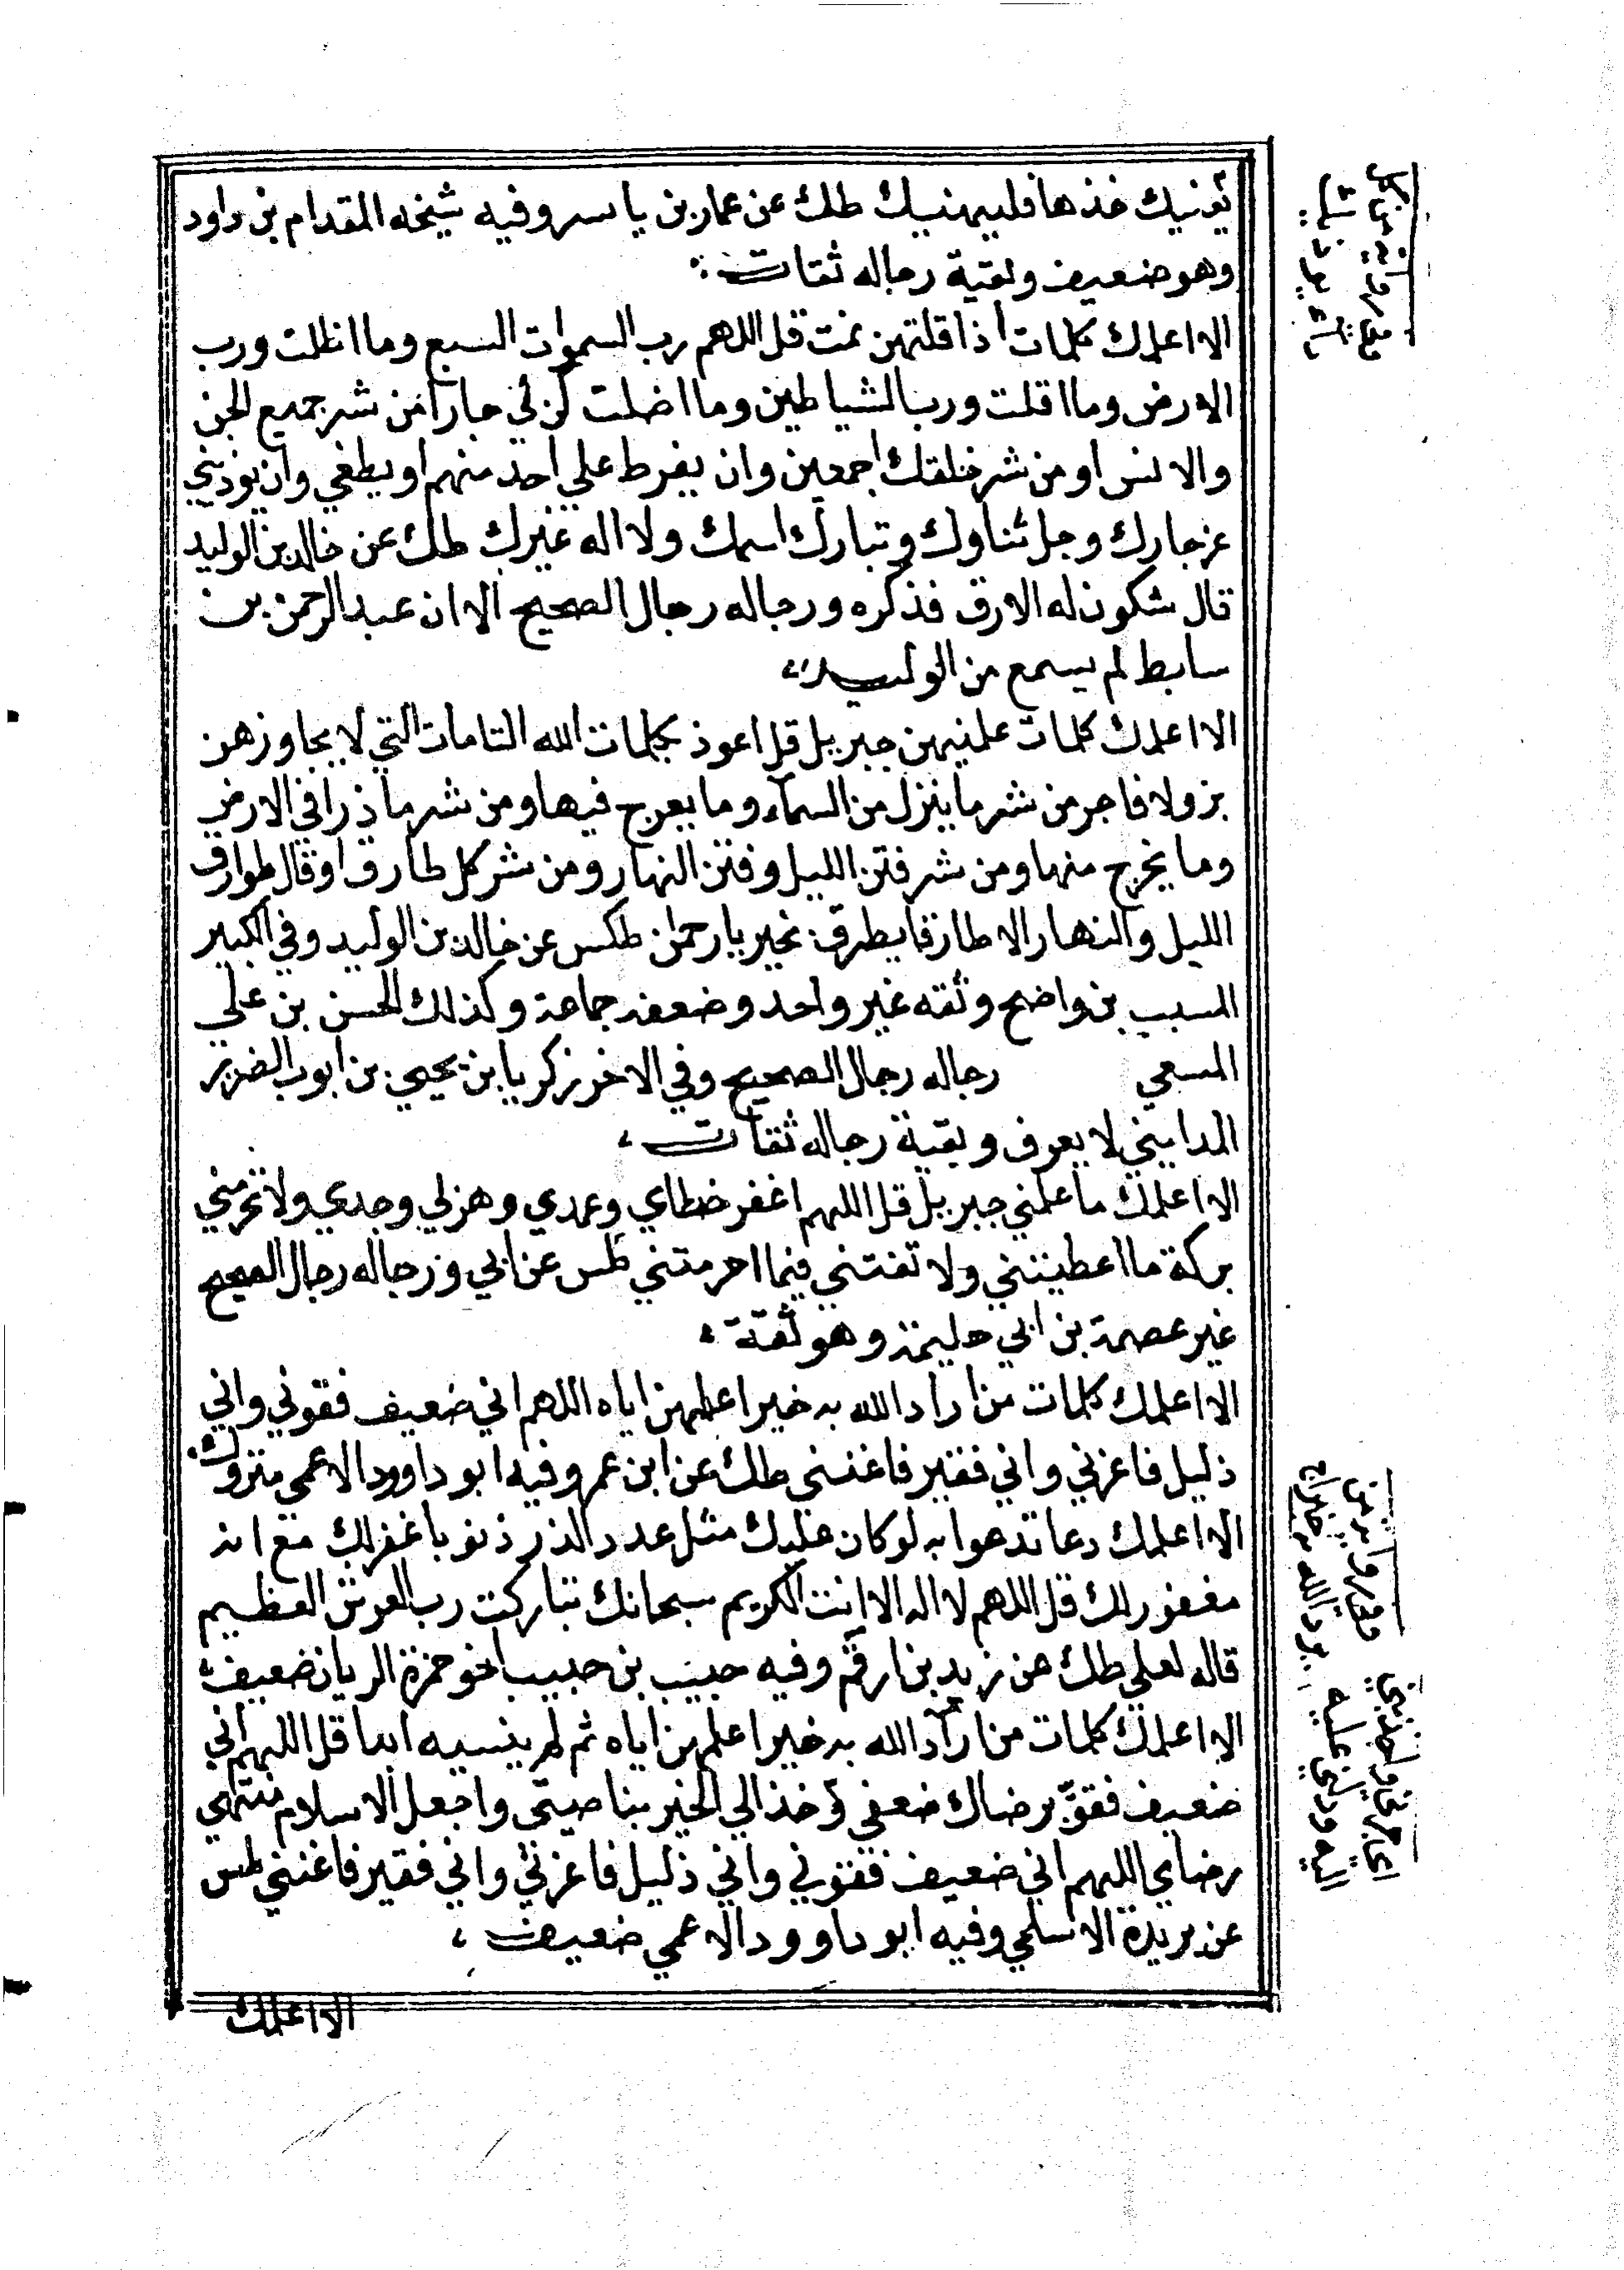 يغنيك خذها فليهنيك طك عن عمار بن ياسر وفيه شيخه المقدام بن داود
وهو ضعيف وبقية رجاله ثقات
الا اعلمك كلمات اذا قلتهن نمت قل اللهم رب السموات السبع وما اظلت ورب
الارض وما اقلت ورب الشياطين وما اضلت كن لي جارا من شر جميع الجن
والانس او من شر خلقك اجمعين وان يفرط علي احد منهم او يطغي وان يوذيني
عز جارك وجل ثناوك وتبارك اسمك ولا اله غيرك طك عن خالد بن الوليد
قال شكون له الارق فذكره ورجاله رجال الصحيح الا ان عبد الرحمن بن
سابط لم يسمع من الوليد
الا اعلمك كلمات علمنيهن جبريل قل اعوذ بكلمات الله التامات التي لا يجاوزهن
بر ولا فاجر من شر ما ينزل من السماء وما يعرج فيها ومن شر ما ذرا في الارض
وما يخرج منها ومن شر فتن الليل وفتن النهار ومن شر كل طارق او قال طوارق
الليل والنهار الا طارقا يطرق بخير يا رحمان طكس عن خالد بن الوليد وفي الكبير
المسيب بن واضح وثقه غير واحد وضعفه جماعة وكذلك الحسن بن علي
رجاله رجال الصحيح وفي الاخر زكريا بن يحيي بن ايوب الضرير
المدايني لا يعرف وبقية رجاله ثقات
الا اعلمك ما علمني جبريل قل اللهم اغفر خطاي وعمدي وهزلي وجدي ولا تحرمني
بركة ما اعطيتني ولا تفتني فيما احرمتني طس عن ابي ورجاله رجال الصحيح
غير عصمة بن ابي حليمة وهو ثقة
الا اعلمك كلمات من اراد الله به خيرا علمهن اياه اللهم اني ضعيف فقوني واني
ذليل فاعزني واني فقير فاغنني طك عن ابن عمر وفيه ابو داوود الاعمي متروك
الا اعلمك دعا تدعوا به لو كان عليك مثل عدد الذر ذنوبا غفر لك مع انه
مغفور لك قل اللهم لا اله الا انت الكريم سبحانك تباركت رب العرش العظيم
قاله لعلي طك عن زيد بن ارقم وفيه حبيب بن حبيب اخو حمزة الريان ضعيف
الا اعلمك كلمات من اراد الله به خيرا علمهن اياه ثم لم ينسيه ابدا قل اللهم اني
ضعيف فقو برضاك ضعفي وخذ الي الخير بناصيتي واجعل الاسلام منتهي
رضاي اللهم اني ضعيف فقوني واني ذليل فاعزني واني فقير فاغنني طس
عن بريدة الاسلمي وفيه ابو داوود الاعمي ضعيف
الا اعلمك